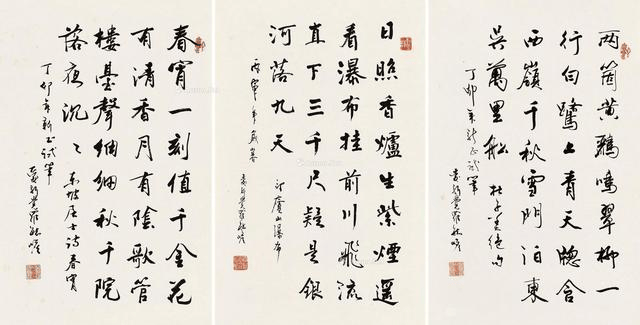 两箇黄鸝鳴翠柳一
行白鷺上青天牕含
西嶺千秋雪門泊東
吳萬里船 杜子美絕句
丁卯年新正試筆
愛新覺羅毓嶦
日照香爐生紫煙遥
看瀑布挂前川飛流
直下三千尺疑是銀
河落九天 望廬山瀑布
丙寅年歲暮
愛新覺羅毓嶦
春宵一刻值千金花
有清香月有陰歌管
樓臺聲細細秋千院
落夜沉〻 東坡居士詩春宵
丁卯年新正試筆
愛新覺羅毓嶦